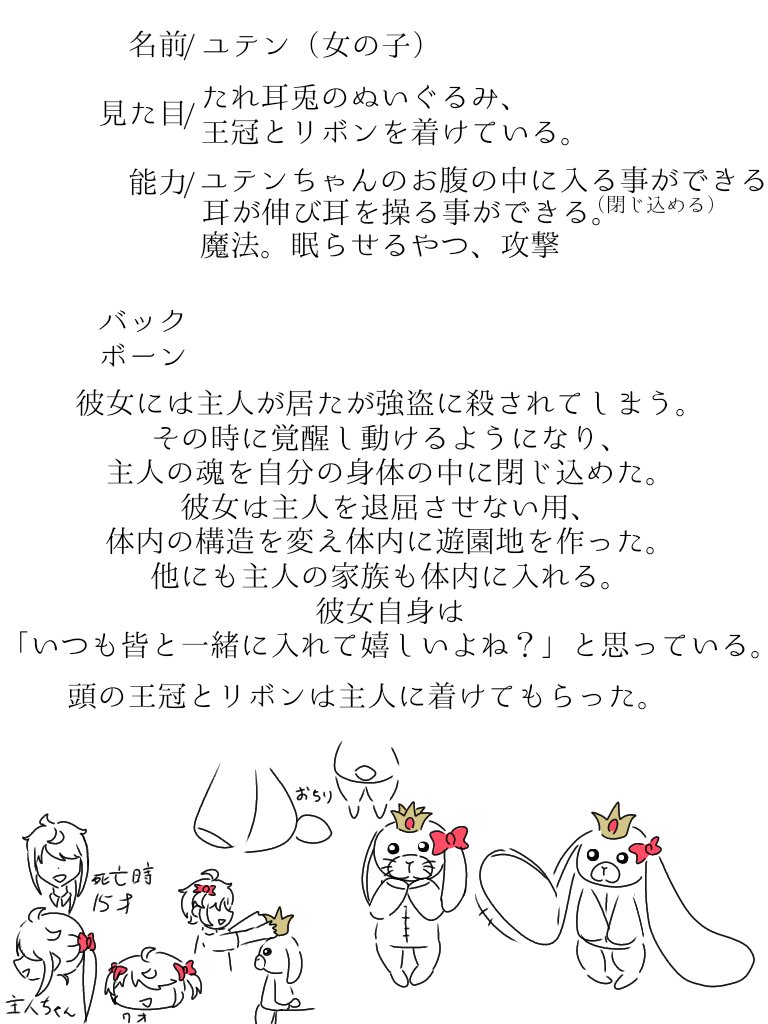 名前/ ユテン（女の子）
見た目/ たれ耳兎のぬいぐるみ、
王冠とリボンを着けている。
能力/ ユテンちゃんのお腹の中に入る事ができる
（閉じ込める）
耳が伸び耳を操る事ができる。
魔法。眠らせるやつ、攻撃
バック
ボーン
彼女には主人が居たが強盗に殺されてしまう。
その時に覚醒し動けるようになり、
主人の魂を自分の身体の中に閉じ込めた。
彼女は主人を退屈させない用、
体内の構造を変え体内に遊園地を作った。
他にも主人の家族も体内に入れる。
彼女自身は
「いつも皆と一緒に入れて嬉しいよね？」と思っている。
頭の王冠とリボンは主人に着けてもらった。
おちり
死亡時
15才
主人ちゃん
7才